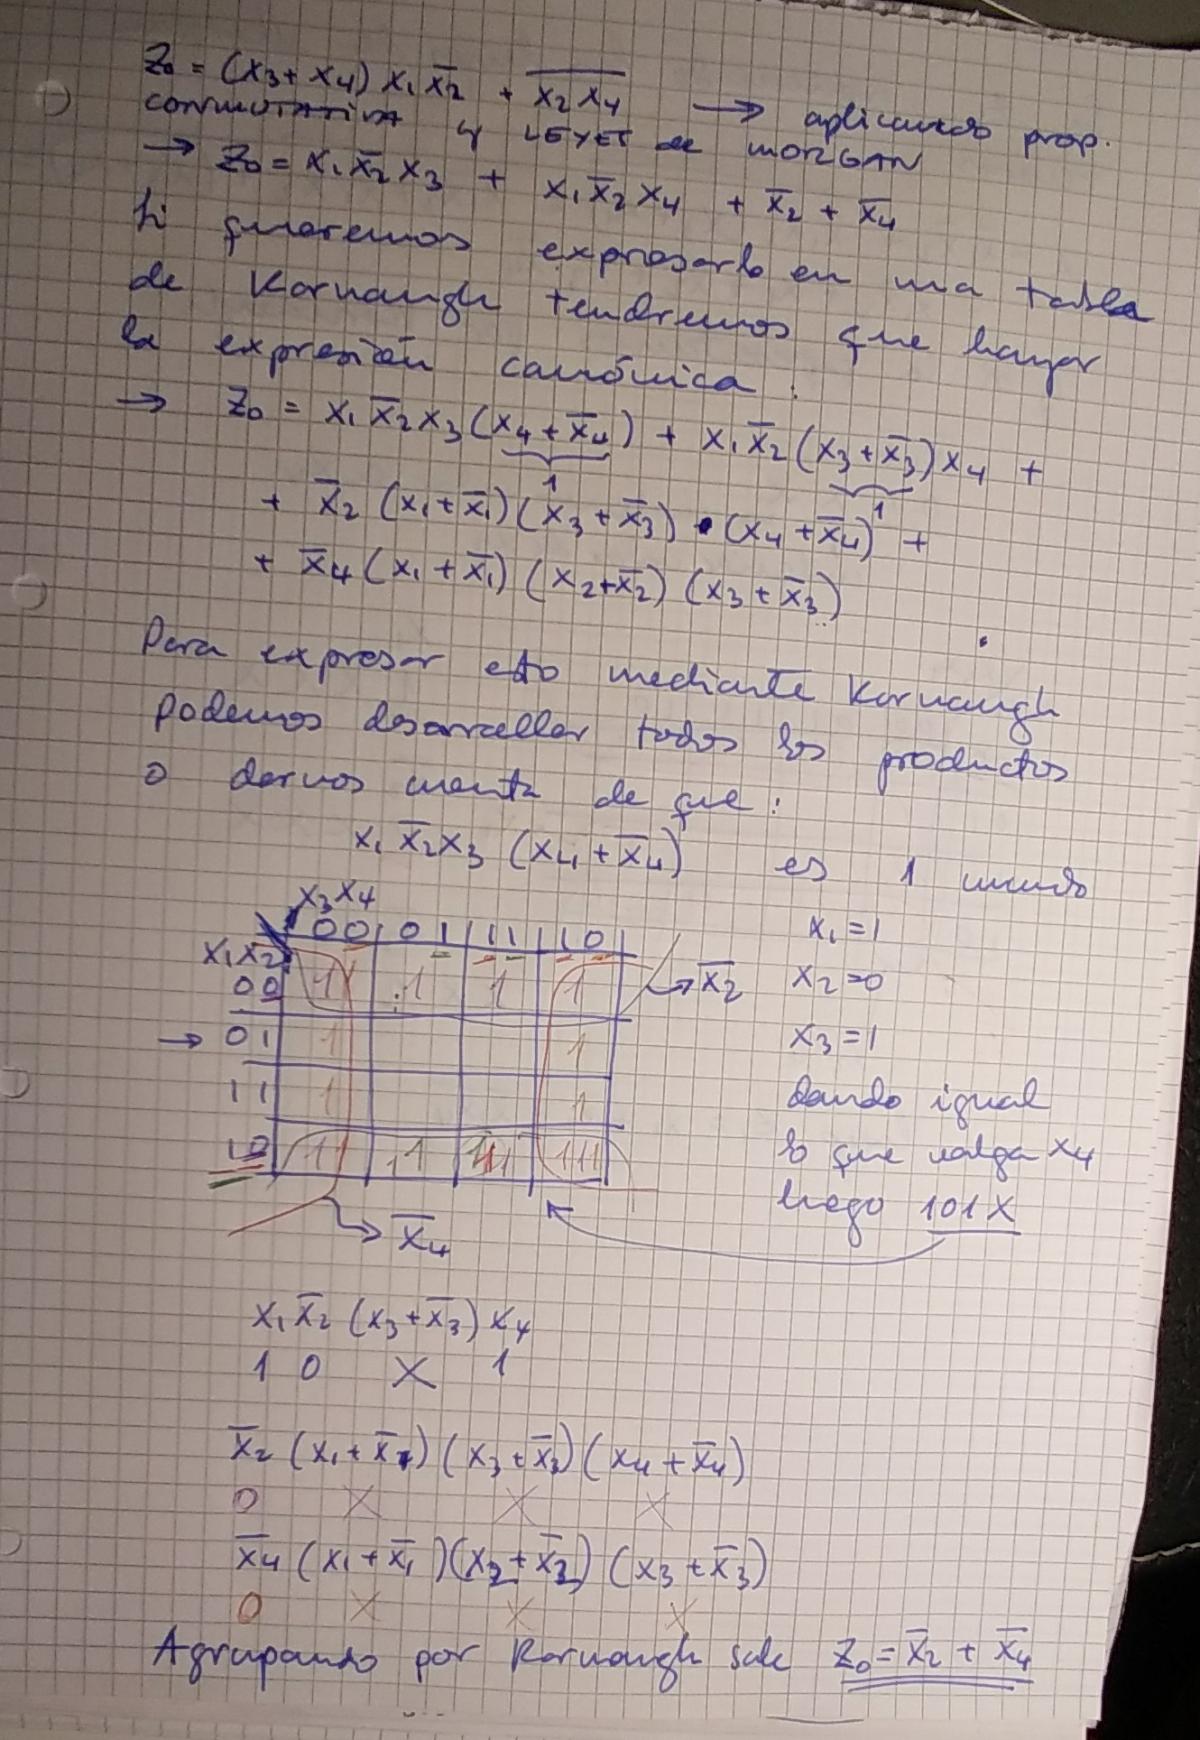 Z₀ = (x₃ + x₄) x₁ x̅₂ + \overline{x₂ x₄} → aplicando prop.
conmutativa y LEYES de MORGAN
→ Z₀ = x₁ x̅₂ x₃ + x₁ x̅₂ x₄ + x̅₂ + x̅₄
Si queremos expresarlo en una tabla
de Karnaugh tendremos que hayar
la expresión canónica:
→ Z₀ = x₁ x̅₂ x₃ (x₄ + x̅₄) + x₁ x̅₂ (x₃ + x̅₃) x₄ +
1 1
+ x̅₂ (x₁ + x̅₁) (x₃ + x̅₃) • (x₄ + x̅₄) +
+ x̅₄ (x₁ + x̅₁) (x₂ + x̅₂) (x₃ + x̅₃)
Para expresar esto mediante Karnaugh
podemos desarrollar todos los productos
o darnos cuenta de que:
x₁ x̅₂ x₃ (x₄ + x̅₄) es 1 cuando
x₁ = 1
x₂ = 0
x₃ = 1
dando igual
lo que valga x₄
luego 101X
x₃ x₄
00 01 11 10
x₁ x₂
00 1 1 1 1 → x̅₂
→ 01 1 1
11 1 1
10 11 11 111
→ x̅₄
x₁ x̅₂ (x₃ + x̅₃) x₄
1 0 X 1
x̅₂ (x₁ + x̅₁) (x₃ + x̅₃) (x₄ + x̅₄)
0 X X X
x̅₄ (x₁ + x̅₁) (x₂ + x̅₂) (x₃ + x̅₃)
0 X X X
Agrupando por Karnaugh sale Z₀ = x̅₂ + x̅₄